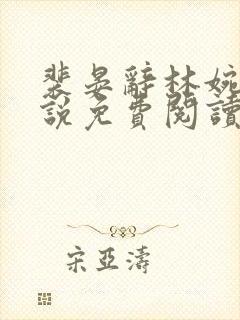 裴晏辭林婉
說免費閱讀
宋亞濤